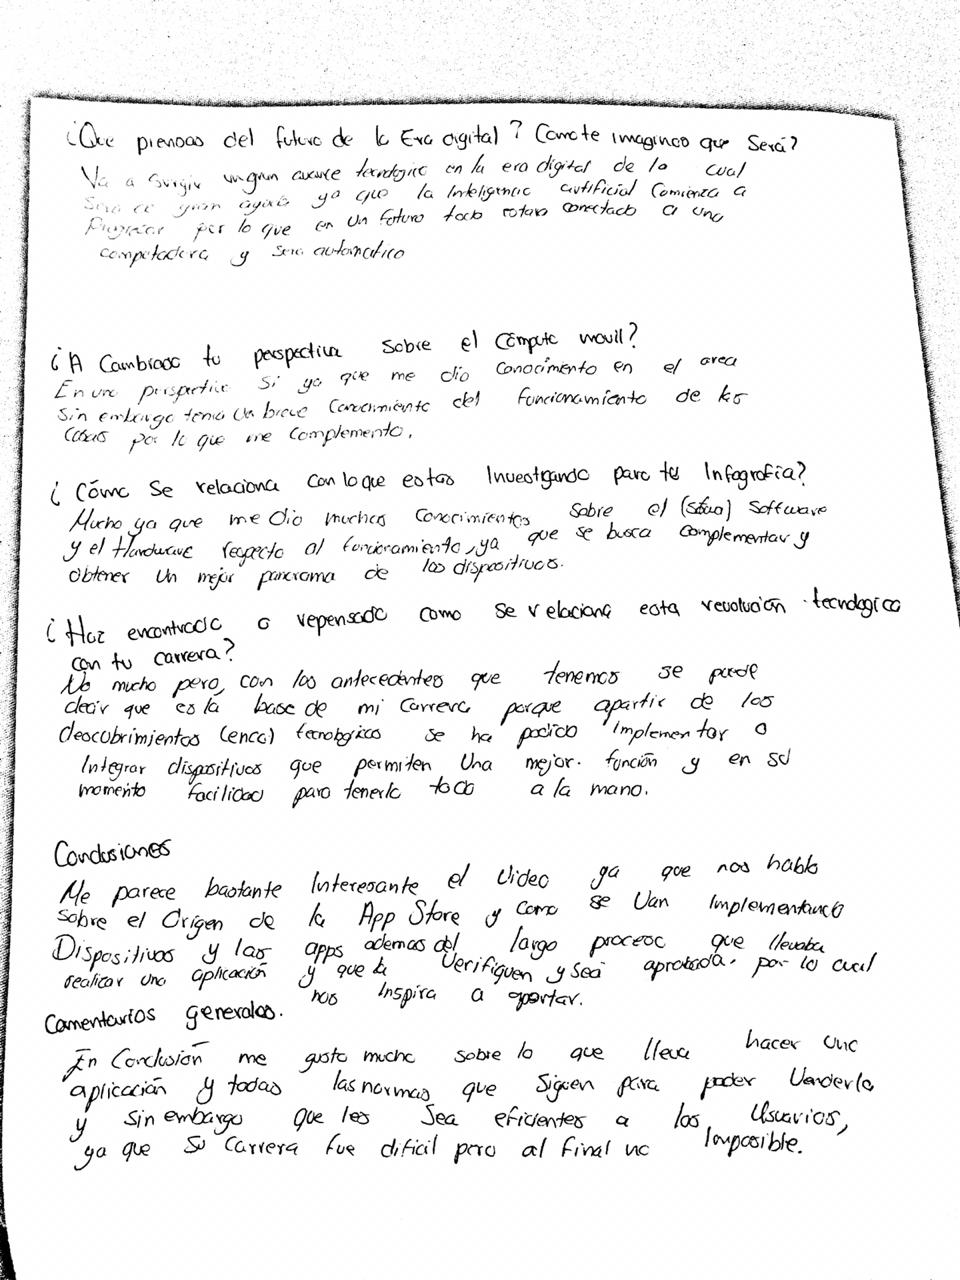 ¿Que piensas del futuro de la Era digital? Como te imaginas que Será?
Va a Surgir un gran avance tecnologico en la era digital de lo cual
Sera de gran ayuda ya que la Inteligencia artificial Comienza a
Progresar por lo que en un futuro todo estara conectado a una
computadora y Sera automatico
¿A Cambiado tu perspectiva Sobre el Cómputo movil?
En una perspectiva Si ya que me dio Conocimiento en el area
Sin embargo tenia Un breve Conocimiento del funcionamiento de las
Cosas por lo que me Complemento.
¿Cómo Se relaciona con lo que estas Investigando para tu Infografía?
Mucho ya que me Dio muchos Conocimientos Sobre el Software
y el Hardware respecto al funcionamiento, ya que se busca complementar y
obtener Un mejor panorama de los dispositivos.
¿Haz encontrado o repensado como se relaciona esta revolución tecnologica
con tu carrera?
No mucho pero, con los antecedentes que tenemos se puede
decir que es la base de mi Carrera porque apartir de los
descubrimientos (enco) tecnologicos se ha podido Implementar o
Integrar dispositivos que permiten Una mejor. función y en su
momento facilidad para tenerlo todo a la mano.
Conclusiones
Me parece bastante Interesante el Video ya que nos habla
sobre el Origen de la App Store y como se Van Implementando
Dispositivos y las apps ademas del largo proceso que llevaba
realizar una aplicación y que la Verifiquen y sea aprobada, por lo cual
nos Inspira a aportar.
Comentarios generales.
En Conclusión me gusto mucho sobre lo que lleva hacer una
aplicación y todas las normas que Siguen para poder Venderla
y sin embargo que les Sea eficientes a los Usuarios,
ya que Su Carrera fue dificil pero al final no Imposible.